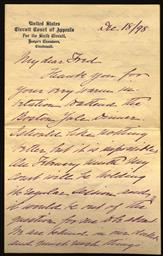 United States
Circuit Court of Appeals
For the Sixth Circuit,
Judge's Chambers,
Cincinnati.
Dec. 18/98
My dear Ford
Thank you for
your very warm in-
vitation to attend the
Boston Yale Dinner
I should like nothing
better but it is impossible
in February when my
court will be holding
its regular session and
it would be out of the
question for me to
We are behind in our docket
and must push things